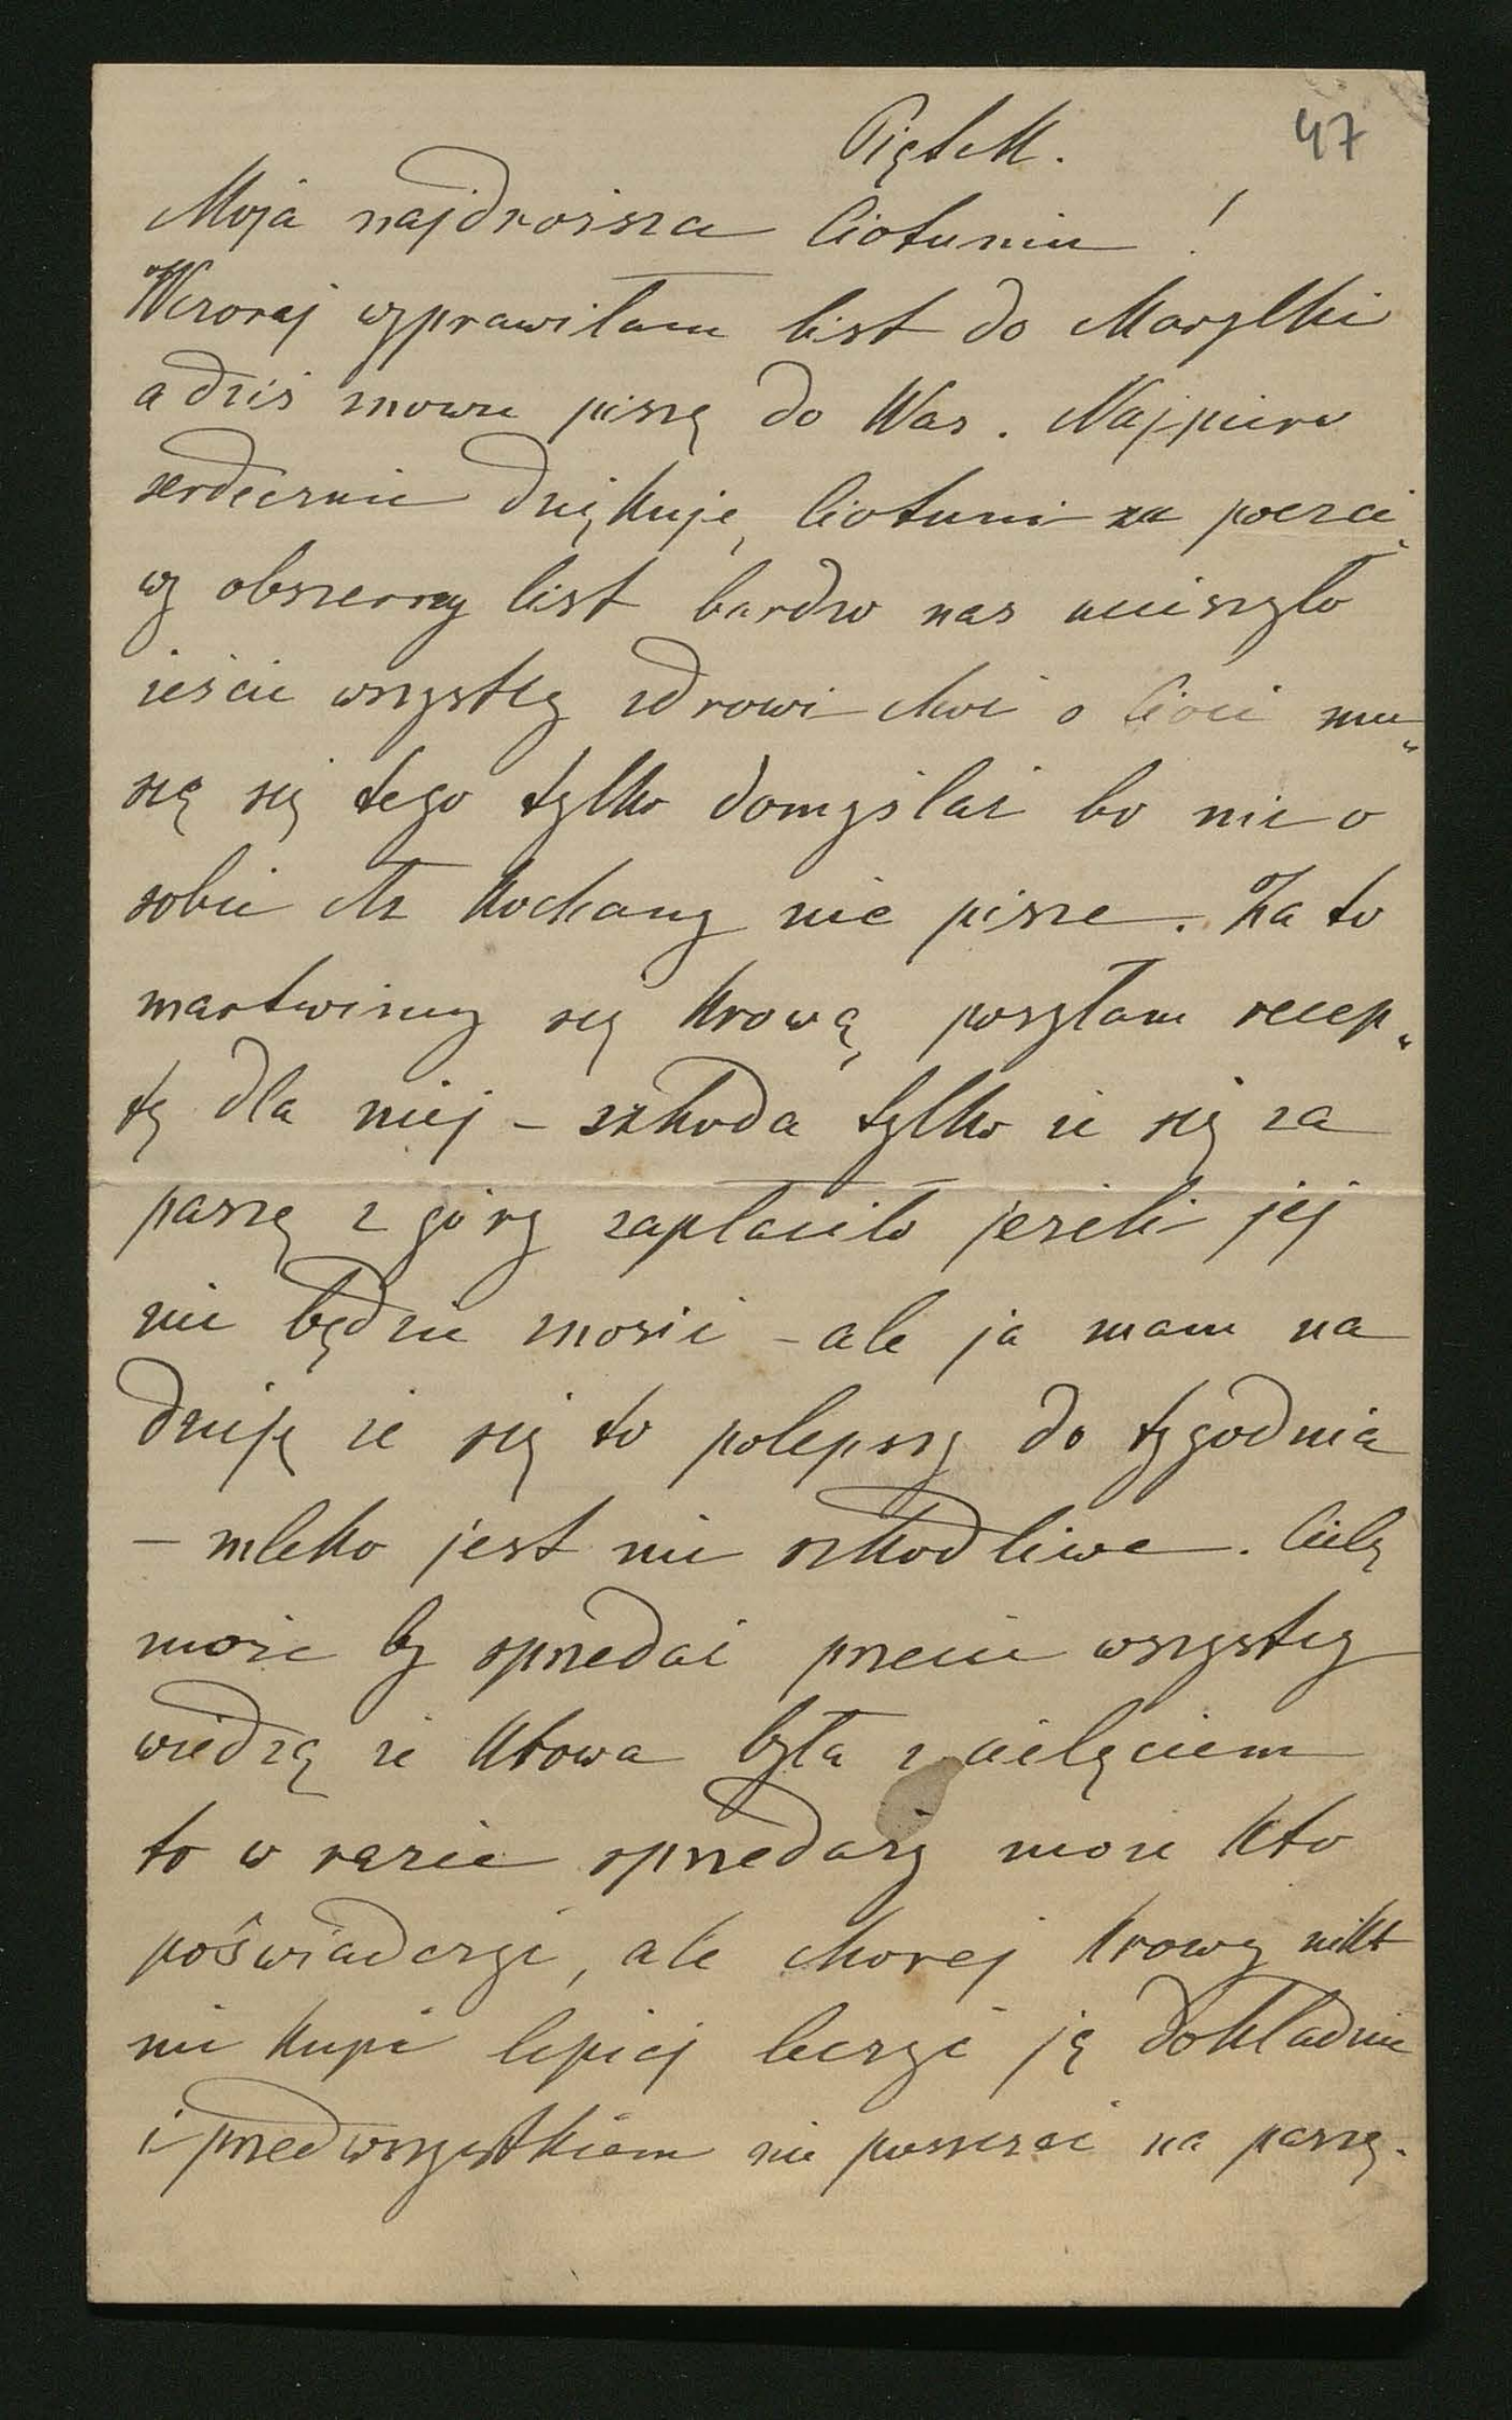 47
Piątek.
Moja najdroższa Ciotuniu!
Wczoraj wyprawiłam list do Marylki
a dziś znowu piszę do Was. Najpierw
serdecznie dziękuję Ciotuni za poczci„
wy obszerny list bardzo nas ucieszyło
żeście wszyscy zdrowi choć o Cioci mu„
szę się tego tylko domyślać bo nic o
sobie kochany nie pisze. Za to
martwimy się krową, posyłam recep„
tę dla niej – szkoda tylko że się za
paszę z góry zapłaciło jeżeli jej
nie będzie znosić – ale ja mam na
dzieję że się to polepszy do tygodnia
– mleko jest nie szkodliwe. Cielę
może by sprzedać przecie wszyscy
wiedzą że krowa była z cielęciem
to w razie sprzedaży może kto
poświadczyć, ale chorej krowy nikt
nie kupi lepiej leczyć ją dokładnie
i przedwszystkiem nie puszczać na paszę.